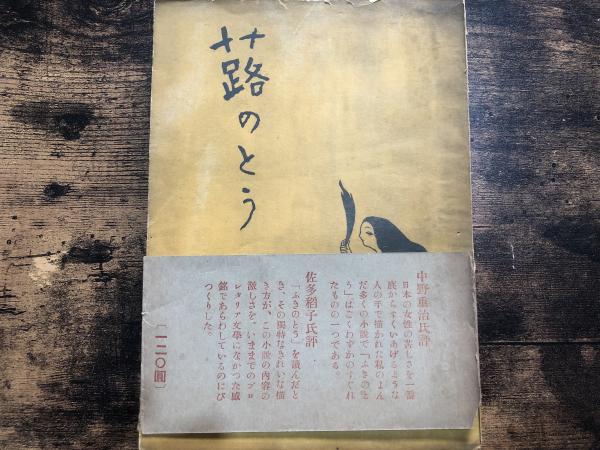 蕗のとう
中野重治氏評
日本の女性の苦しさを一番
底からすくいあげるような
人の手で描かれた私のよん
だ多くの小説で「ふきのと
う」はごくわずかのすぐれ
たものの一つである。
佐多稻子氏評
「ふきのとう」を讀んだと
き、その獨特なきれいな描
き方が、この小説の内容の
激しさを、いままでのプロ
レタリア文學になかつた感
銘であらわしているのにび
つくりした。
〔一二〇圓〕